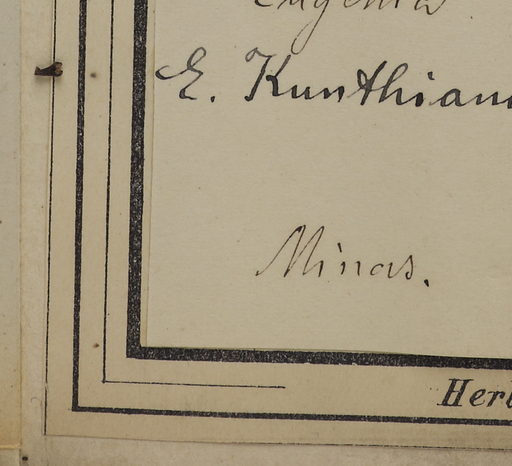 Eugenia
E. Kunthian
Minas.
Her